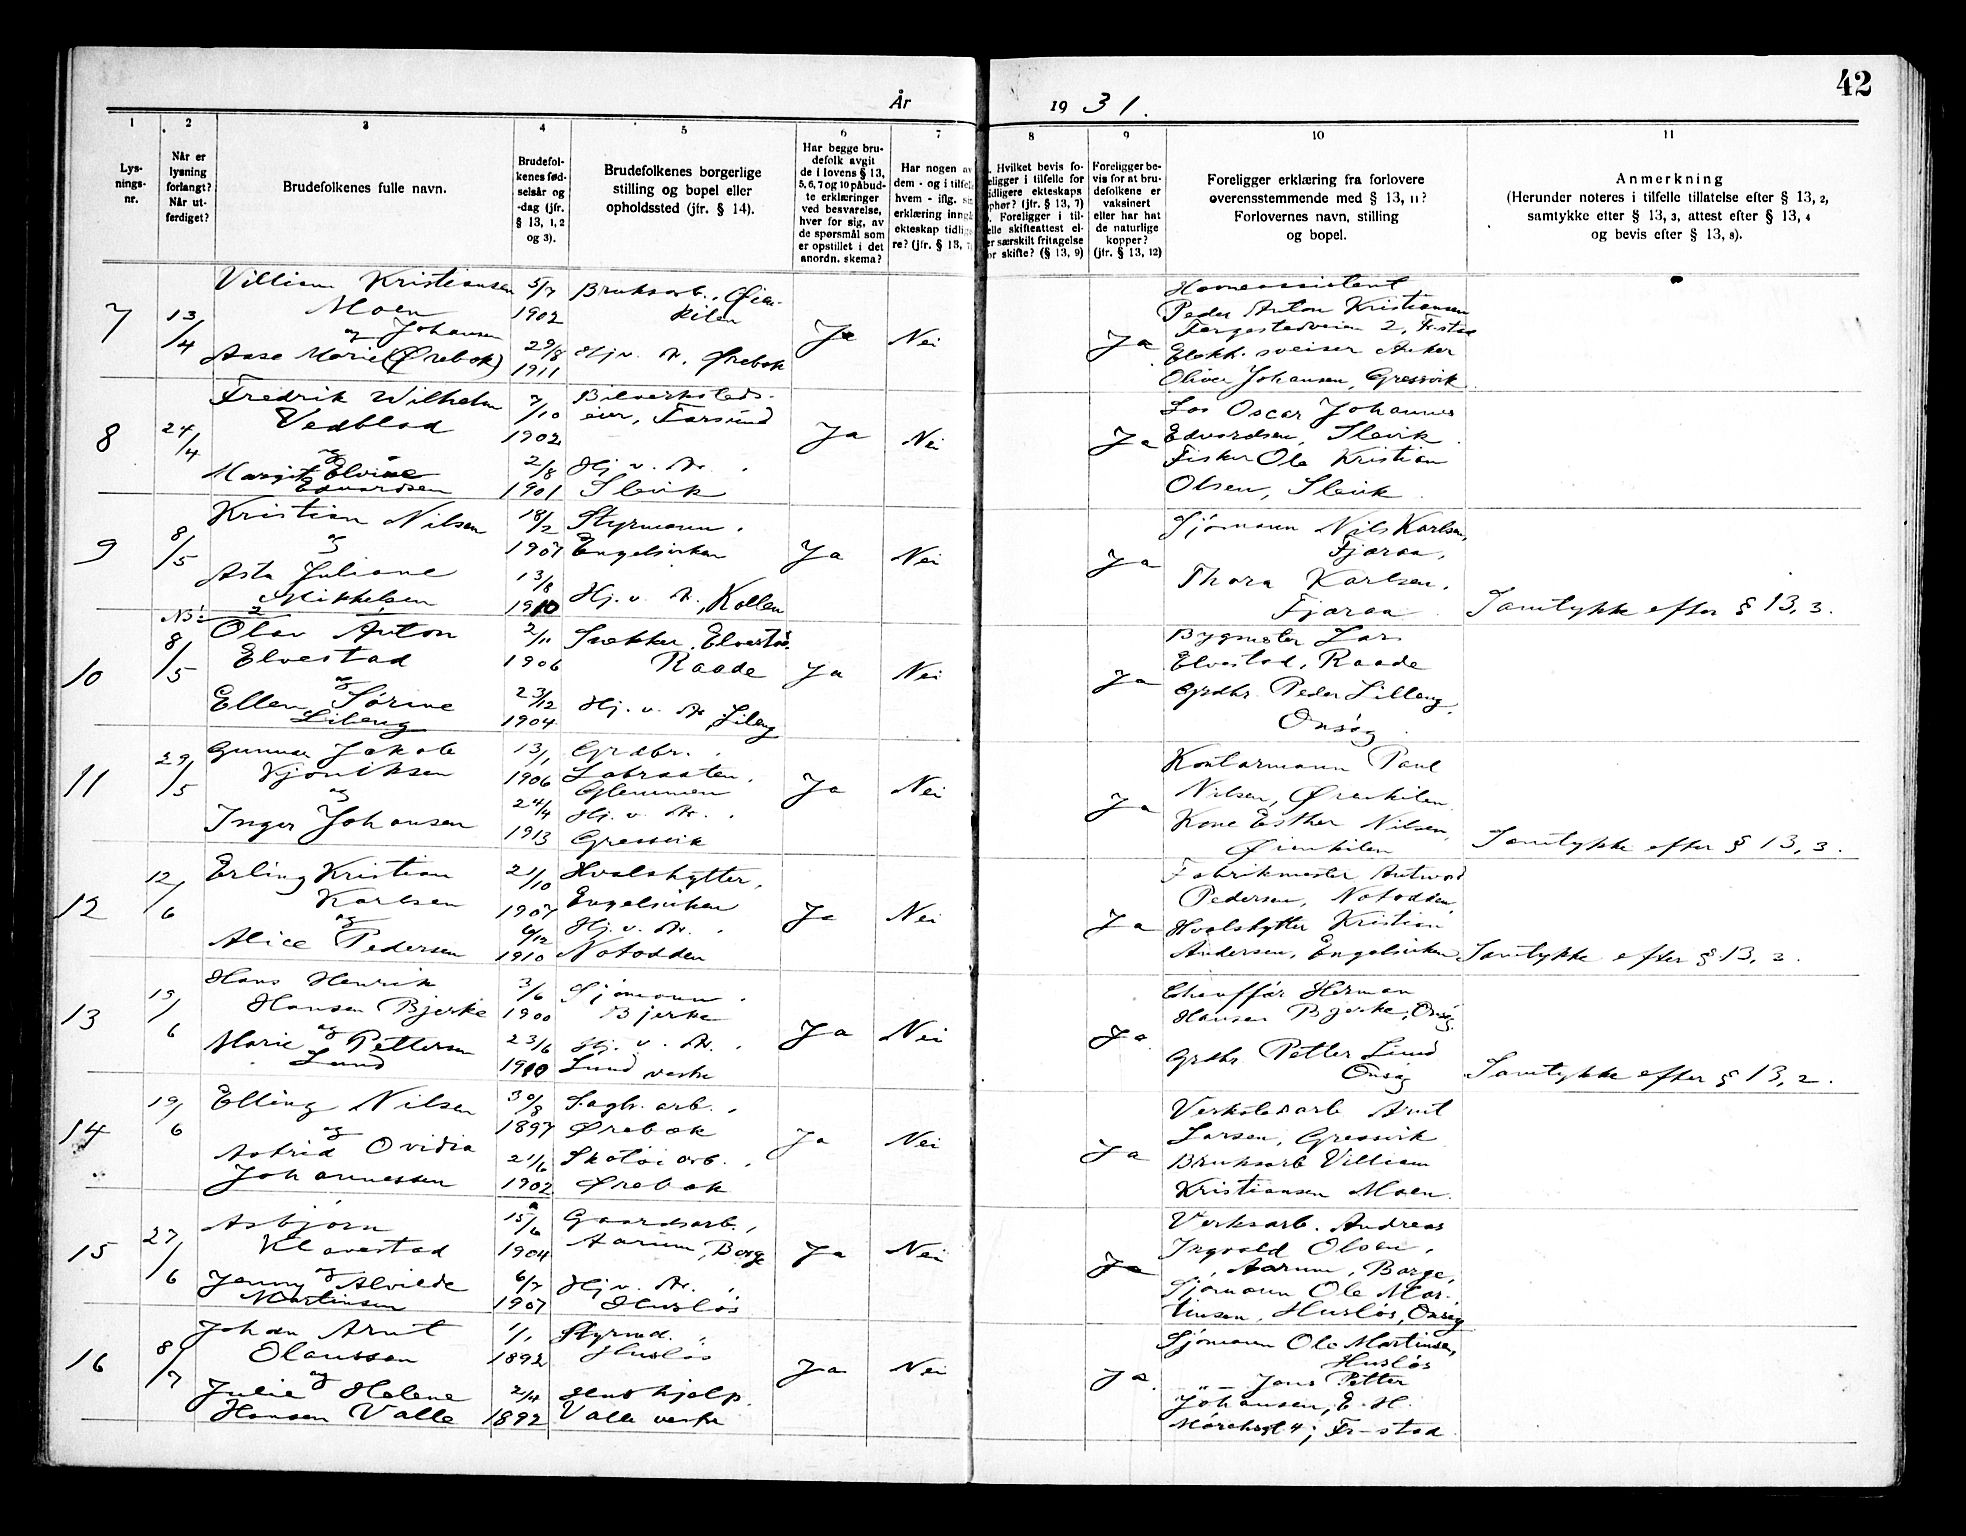 42
År 1931.
1
Lys-
nings-
nr.
2
Når er
lysning
forlangt?
Når ut-
ferdiget?
3
Brudefolkenes fulle navn.
4
Brudefol-
kenes fød-
selsår og
-dag (jfr.
§ 13, 1, 2
og 3).
5
Brudefolkenes borgerlige
stilling og bopel eller
opholdssted (jfr. § 14).
6
Har begge bru-
defolk avgit
de i lovens § 13,
5, 6, 7 og 10 påbud-
te erklæringer
ved besvarelse,
hver for sig, av
de spørsmål som
er opstillet i det
anordn. skema?
7
Har nogen av
dem - og i tilfelle
hvem - iflg.
erklæring inng
ekteskap tidlig
re? (jfr. § 13,
8
Hvilket bevis fo-
eligger i tilfelle for
idligere ekteskaps
phør? (jfr. § 13, 7)
Foreligger i til-
elle skifteattest el-
er særskilt fritagelse
or skifte? (§ 13, 9)
9
Foreligger be-
vis for at bru-
defolkene er
vaksinert
eller har hat
de naturlige
kopper?
(jfr. § 13, 12)
10
Foreligger erklæring fra forlovere
overensstemmende med § 13, 11?
Forlovernes navn, stilling
og bopel.
11
Anmerkning
(Herunder noteres i tilfelle tillatelse efter § 13, 2,
samtykke efter § 13, 3, attest efter § 13, 4
og bevis efter § 13, 8).
7
13/4
Villiam Kristiansen
Moen
og Johansen
Aase Marie (Ørebæk)
5/7
1902
29/8
1911
Bruksarb., Øien-
kilen
Hj. v. A. Ørebæk
Ja
Nei
Ja
Havneassistent
Peder Anton Kristiansen
Torgestedveien 2, F-stad
Elekt. sveiser Anker
Oliver Johansen, Gressvik
8
24/4
Fredrik Wilhelm
Vedblad
og
Margit Elvine
Edvardsen
7/10
1902
2/8
1901
Bilverksteds-
eier, Farsund
Hj. v. A.
Slevik
Ja
Nei
Ja
Los Oscar Johannes
Edvardsen, Slevik.
Fisker Ole Kristian
Olsen, Slevik.
9
8/5
Kristian Nilsen
og
Asta Juliane
Mikkelsen
18/2
1907
13/8
1910
Styrmann.
Engelsviken
Hj. v. A., Kollen
Ja
Nei
Ja
Sjømann Nils Karlsen,
Fjæraa,
Thora Karlsen,
Fjæraa.
Samtykke efter § 13, 3.
10
8/5
Olav Anton
Elvestad
og
Ellen Sørine
Lileng
2/11
1906
23/12
1904
Snekker, Elvestad
Raade
Hj. v. A. Lileng
Ja
Nei
Ja
Bygmester Lars
Elvestad, Raade
Grdbr. Peder Lilleng,
Onsøy.
11
29/5
Gunnar Jakob
Kjøniksen
og
Inger Johansen
13/1
1906
24/4
1913
Grdbr.
Labraaten,
Glemmen
Hj. v. A.
Gressvik
Ja
Nei
Ja
Kontormann Paul
Nilsen, Øienkilen
Kone Esther Nilsen,
Øienkilen
Samtykke efter § 13, 3.
12
12/6
Erling Kristian
Karlsen
og
Alice Pedersen
21/10
1907
6/12
1910
Hvalskytter,
Engelsviken
Hj. v. A.
Notodden
Ja
Nei
Ja
Fabrikmester
Pedersen, Notodden,
Hvalskytter Kristian
Andersen, Engelsviken.
Samtykke efter § 13, 2.
13
19/6
Hans Henrik
Hansen Bjerke
og
Marie Pettersen
Lund
3/6
1900
23/6
1910
Sjømann.
Bjerke
Hj. v. A.
Lund vestre
Ja
Nei
Ja.
Chauffør Herman
Hansen Bjerke, Onsøy,
Grdbr. Petter Lund
Onsøy
Samtykke efter § 13, 2.
14
19/6
Elling Nilsen
og
Astrid Ovidia
Johannessen
30/8
1897
21/6
1902
Sagbr. arb.,
Ørebæk
Skotøi arb.,
Ørebæk
Ja
Nei
Ja
Verkstedarb Arnt
Larsen, Gressvik
Bruksarb Villiam
Kristiansen Moen.
15
27/6
Asbjørn
Klavestad
og
Jenny Alvilde
Martinsen
15/6
1904
6/7
1907
Gaardsarb.,
Aarum, Borge
Hj. v. A.
Husløs
Ja
Nei
Ja
Verksarb. Andreas
Ingvald Olsen,
Aarum, Borge,
Sjømann Ole Mar-
tinsen, Husløs, Onsøy
16
8/7
Johan Arnt
Olaussen
og
Julie Helene
Hansen Valle
1/1
1892
2/4
1892
Styrmd.
Husløs
Hushjelp.
Valle vestre
Ja
Nei
Ja.
Sjømann Ole Martinsen,
Husløs
„ — Jens Petter
Johansen, E. H.
4, Fr-stad